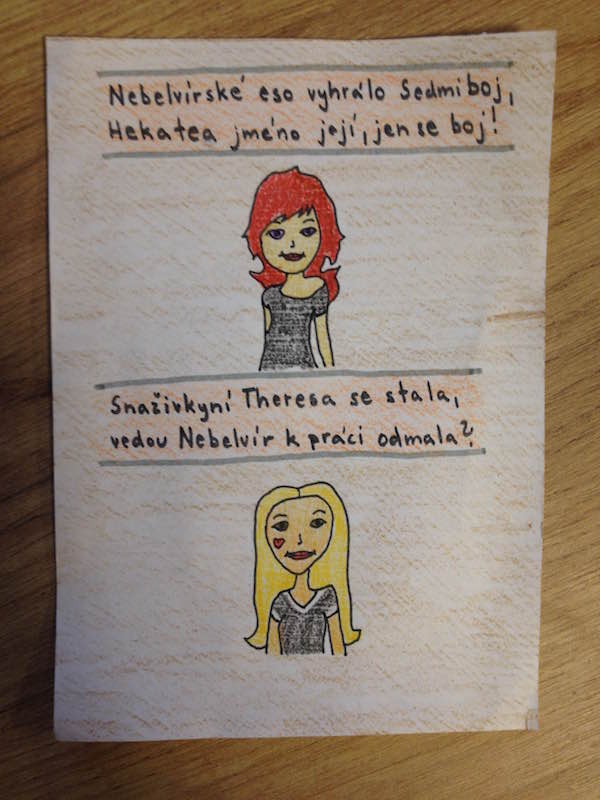 Nebelvírské eso vyhrálo Sedmiboj,
Hekatea jméno její, jen se boj!
Snaživkyní Theresa se stala,
vedou Nebelvír k práci odmala?